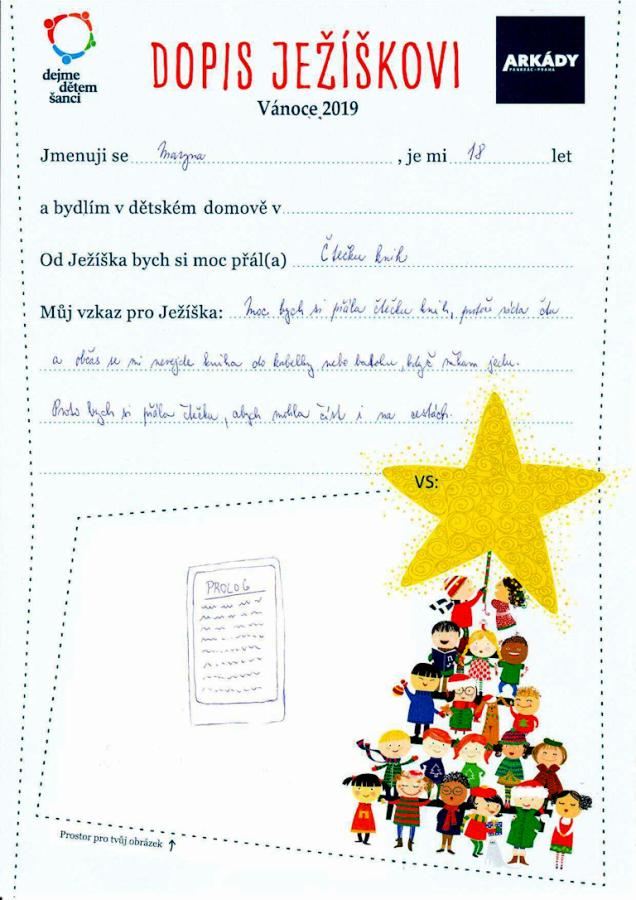 dejme
dětem
šanci
DOPIS JEŽÍŠKOVI
ARKÁDY
PANKRÁC-PRAHA
Vánoce 2019
Jmenuji se Maryna, je mi 18 let
a bydlím v dětském domově v
Od Ježíška bych si moc přál(a) Čtečku knih
Můj vzkaz pro Ježíška: Moc bych si přála čtečku knih, protože ráda čtu
a občas se mi nevejde kniha do kabelky nebo batohu, když někam jedu.
Proto bych si přála čtečku, abych mohla číst i na cestách.
VS:
PROLOG
Prostor pro tvůj obrázek ↑